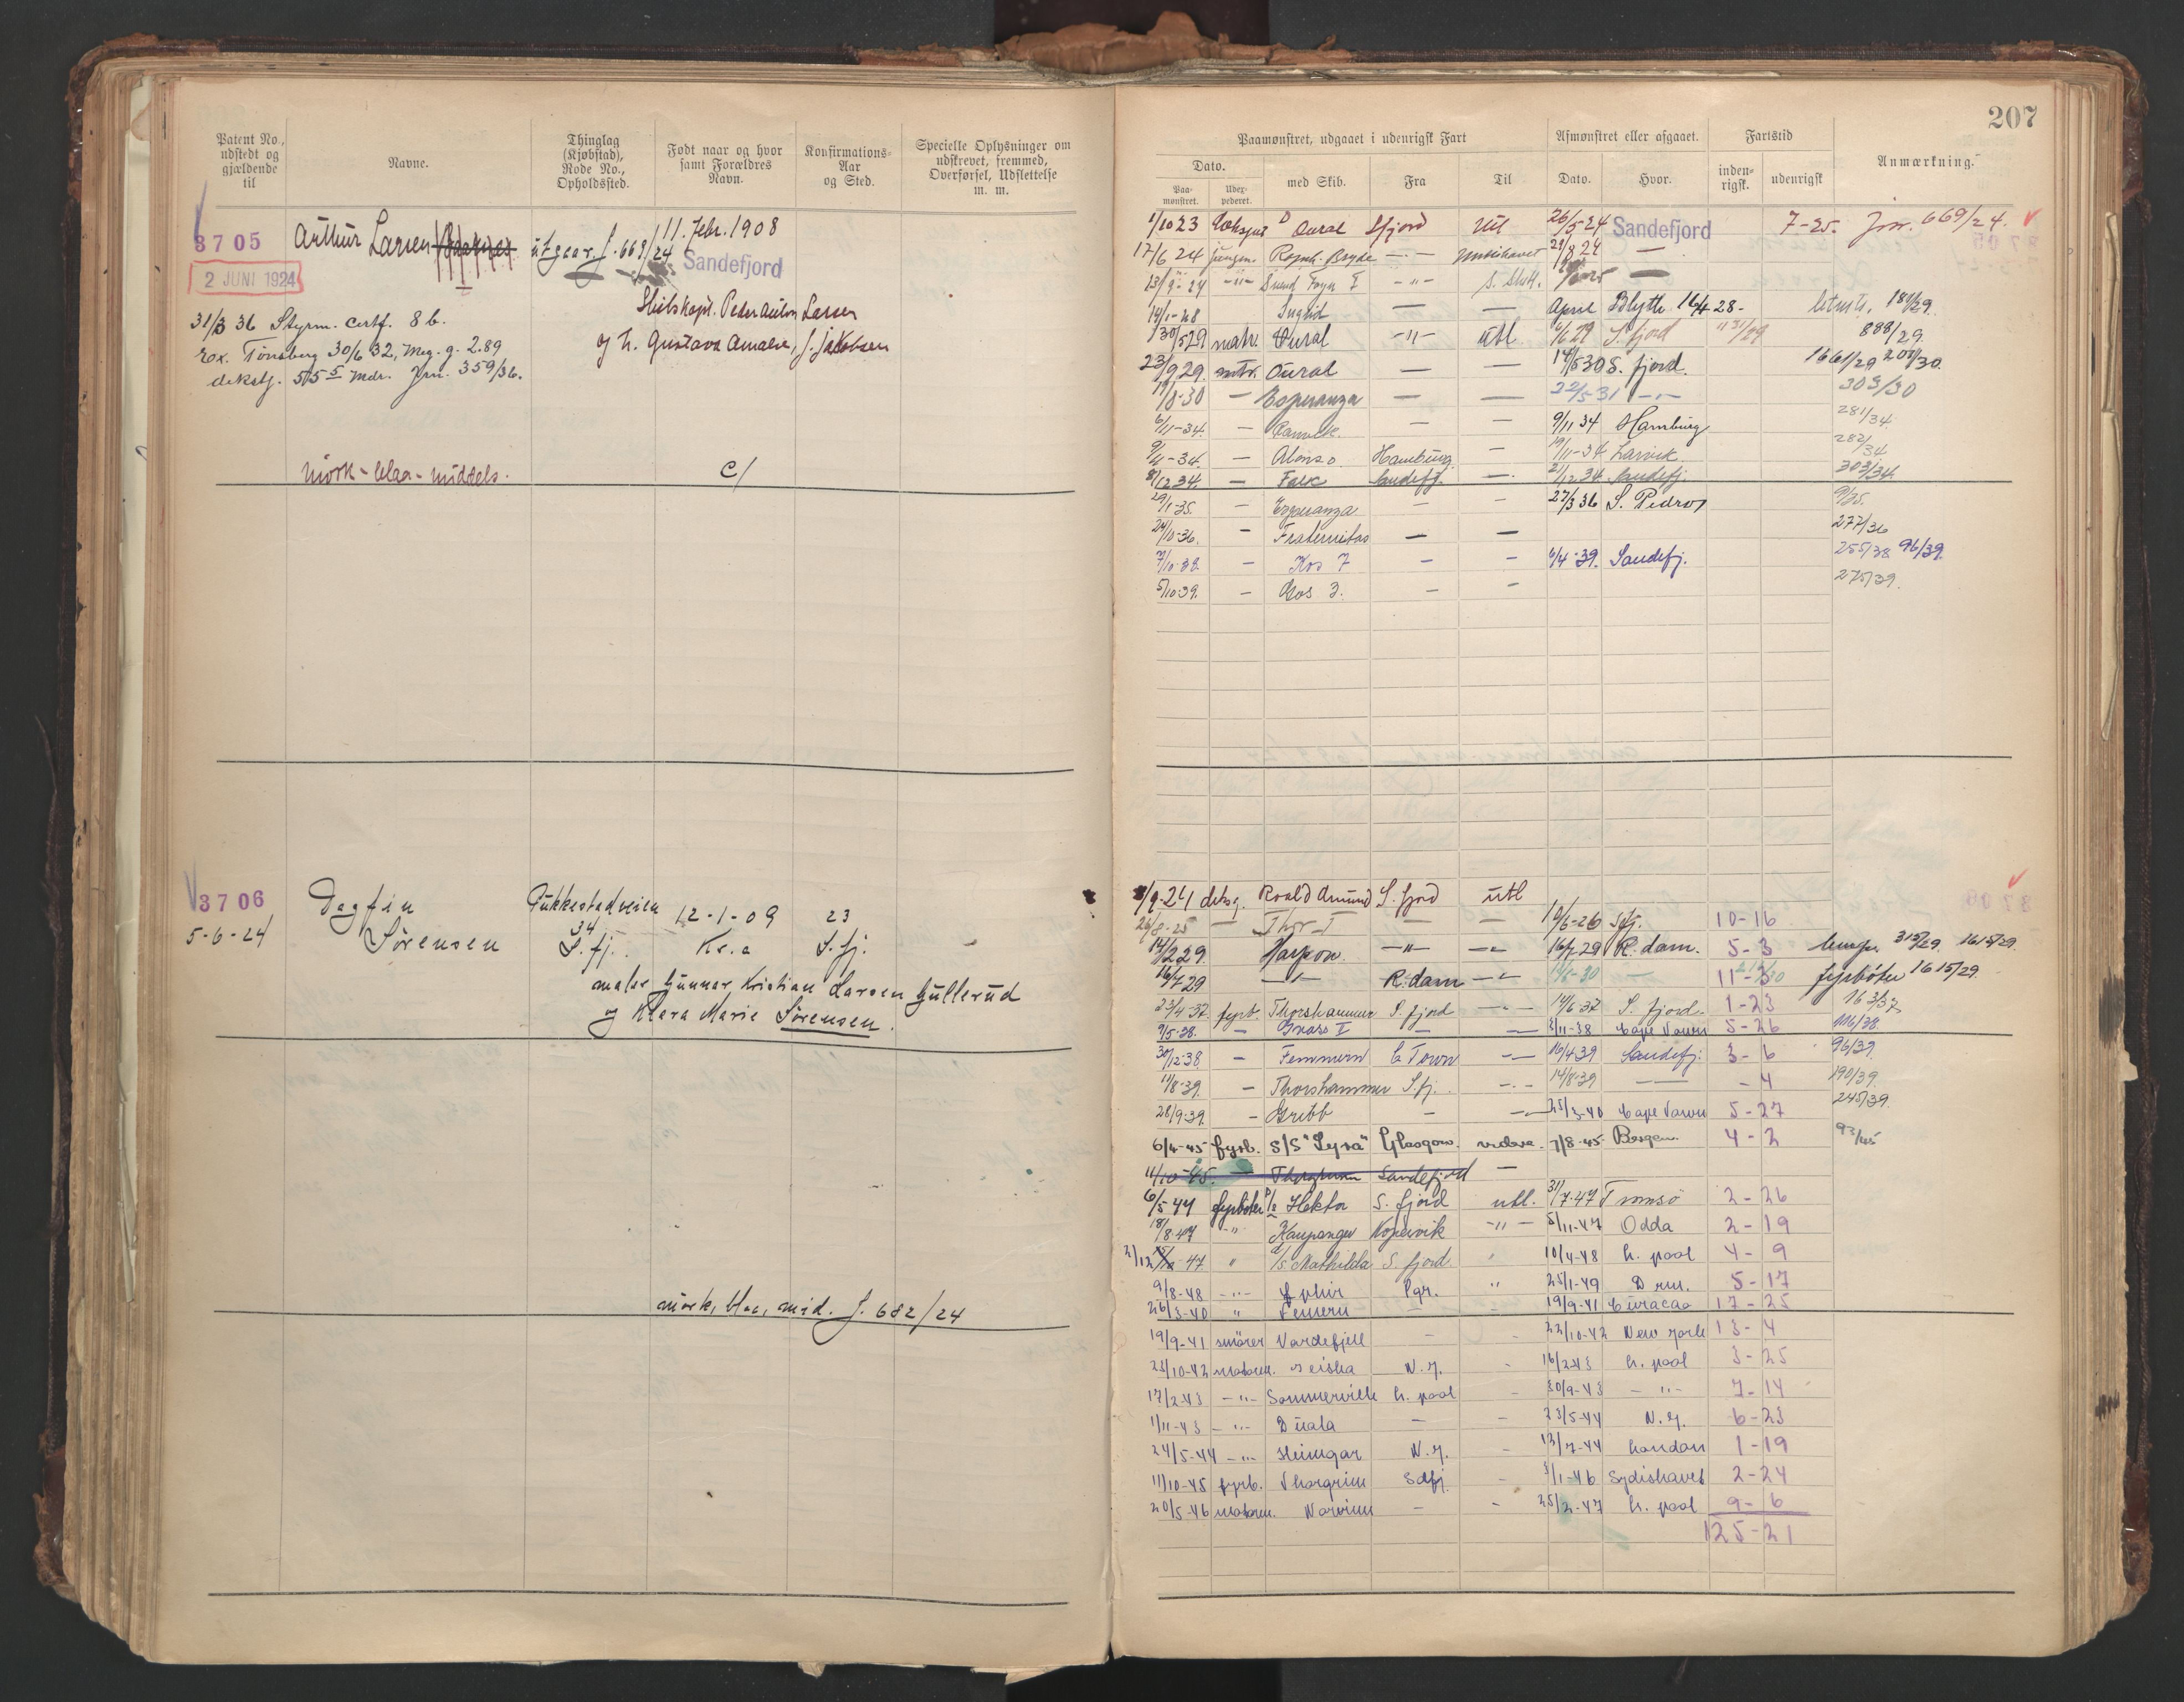 207
Patent No., udstedt og gjældende til
Navne.
Thinglag (Kjøbstad), Rode No., Opholdssted.
Født naar og hvor samt Forældres Navn.
Konfirmations-Aar og Sted.
Specielle Oplysninger om udskrevet, fremmed, Overførsel, Udslettelse m. m.
Paamønstret, udgaaet i udenrigsk Fart
Afmønstret eller afgaaet.
Fartstid
Anmærkning.
Dato.
Paa-mønstret.
Udex-pederet.
med Skib.
Fra
Til
Dato.
Hvor.
inden-rigsk.
udenrigsk
3705 Arthur Larsen utgaar J. 669/24 11. Febr. 1908
2 JUNI 1924 Sandefjord
Skibskapt. Peder Larsen
og h. Gustava Amalie, f. Jakobsen
31/3 36 Styrm. certf. 8 b.
Tønsberg 30/6 32, Meg. g. 2.89
55 5 Mdr. Jrn. 359/36.
mørk - blaa - middels.
1/10 23 Aural Sfjord Utl 26/5-24 Sandefjord 7-25. Jrn. 669/24.
17/6 24 jungm. Bryde — 8 24 —
13/9-24 -"- Svend Foyn I -"-
14/1-28 Ingrid — — April Blyth 28-
30/5 29 matr. Oural -"- Utl 29 S. fjord 888/29.
23/9 29. mtr. Oural — — 14/5 30 S. fjord. 1661/29
8-30 — Esperanza — — 22/5-31 -"- 303/30
6/11-34. — — — 9/11 34 Hamburg 281/34
9/11-34. — Alonso Hamburg — 19/11-34 Larvik 282/34
8/12 34 — Falk Sandefj. — 21/12 34 Sandefj. 303/34.
29/1-35. — Esperanza — — 27/3 36 S. Pedro 9/35.
24/10-36. — Fraternitas — — 277/36
10-38 — Kos 7 — — 6/4-39. Sandefj. 255/38 96/39.
5/10-39. — Kos 3. — — 275/39.
3706 Dagfin Sørensen
5-6-24
Pukkestadveien 34 S.fj.
12-1-09 Kr.a
23 S.fj.
maler Gunnar Kristian Larsen Gullerud
og Klara Marie Sørensen.
mørk, blaa, mid. J. 682/24
9-24 Roald Amund S. fjord utl
26/8-25 — Thor I — — 6-26 Sfj. 10-16
14/2 29. Harpon -"- -"- 16/7-29 R.dam. 5-3 315/29. 1615/29
16/7 29 -"- R.dam -"- fyrbøter 1615/29.
23/4-37. fyrb. Thorshammer S. fjord -"- 14/6-37 S. fjord. 1-23 163/37
9/5-38. — — — 3/11-38 Cape Town 5-26 116/38.
30/12 38. — Femmern C Town -"- 16/4 39 Sandefj. 3-6 96/39.
11/8-39. — Thorshammer S.fj. -"- 14/8-39 — -4 190/39.
28/9-39. — Gribb — -"- 25/3-40 Cape Town 5-27 245/39.
6/4-45 fyrb. S/S "Lyra" Glasgow. videre. 7/8-45. Bergen. 4-2 93/45
11/10-45. — Thorgrimm Sandefjord —
6/5 47 fyrbøter Hektor S. fjord utl. 31/7-47 Tromsø 2-26
18/8-47 -"- Kaupanger Kopervik -"- 5/11-47 Odda 2-19
2/12 47 " Mathilda S. fjord " 10/4-48 L. pool 4-9
9/8-48 -"- Pgr. " 25/1-49 Drm. 5-17
26/3-40 " Femern — 19/9-41 Curacao 17-25
19/9-41 smører Vardefjell — - 22/10-42 New York 13-4
23/10-42 motorm. Leiska N.Y. - 16/2-43 L. pool 3-25
17/2-43 -"- Sommerville L. pool - 30/9-43 -"- 7-14
1/11-43 -"- Duala — - 23/5-44 N.Y. 6-23
24/5-44 -"- Heimgar N.Y. - 13/7-44 London 1-19
11/10-45 fyrb. Thorgrim Sdfj - 3/1-46 Sydishavet 2-24
20/5-46 motorm. Norvinn — - 25/2-47 L. pool 9-6
125-21